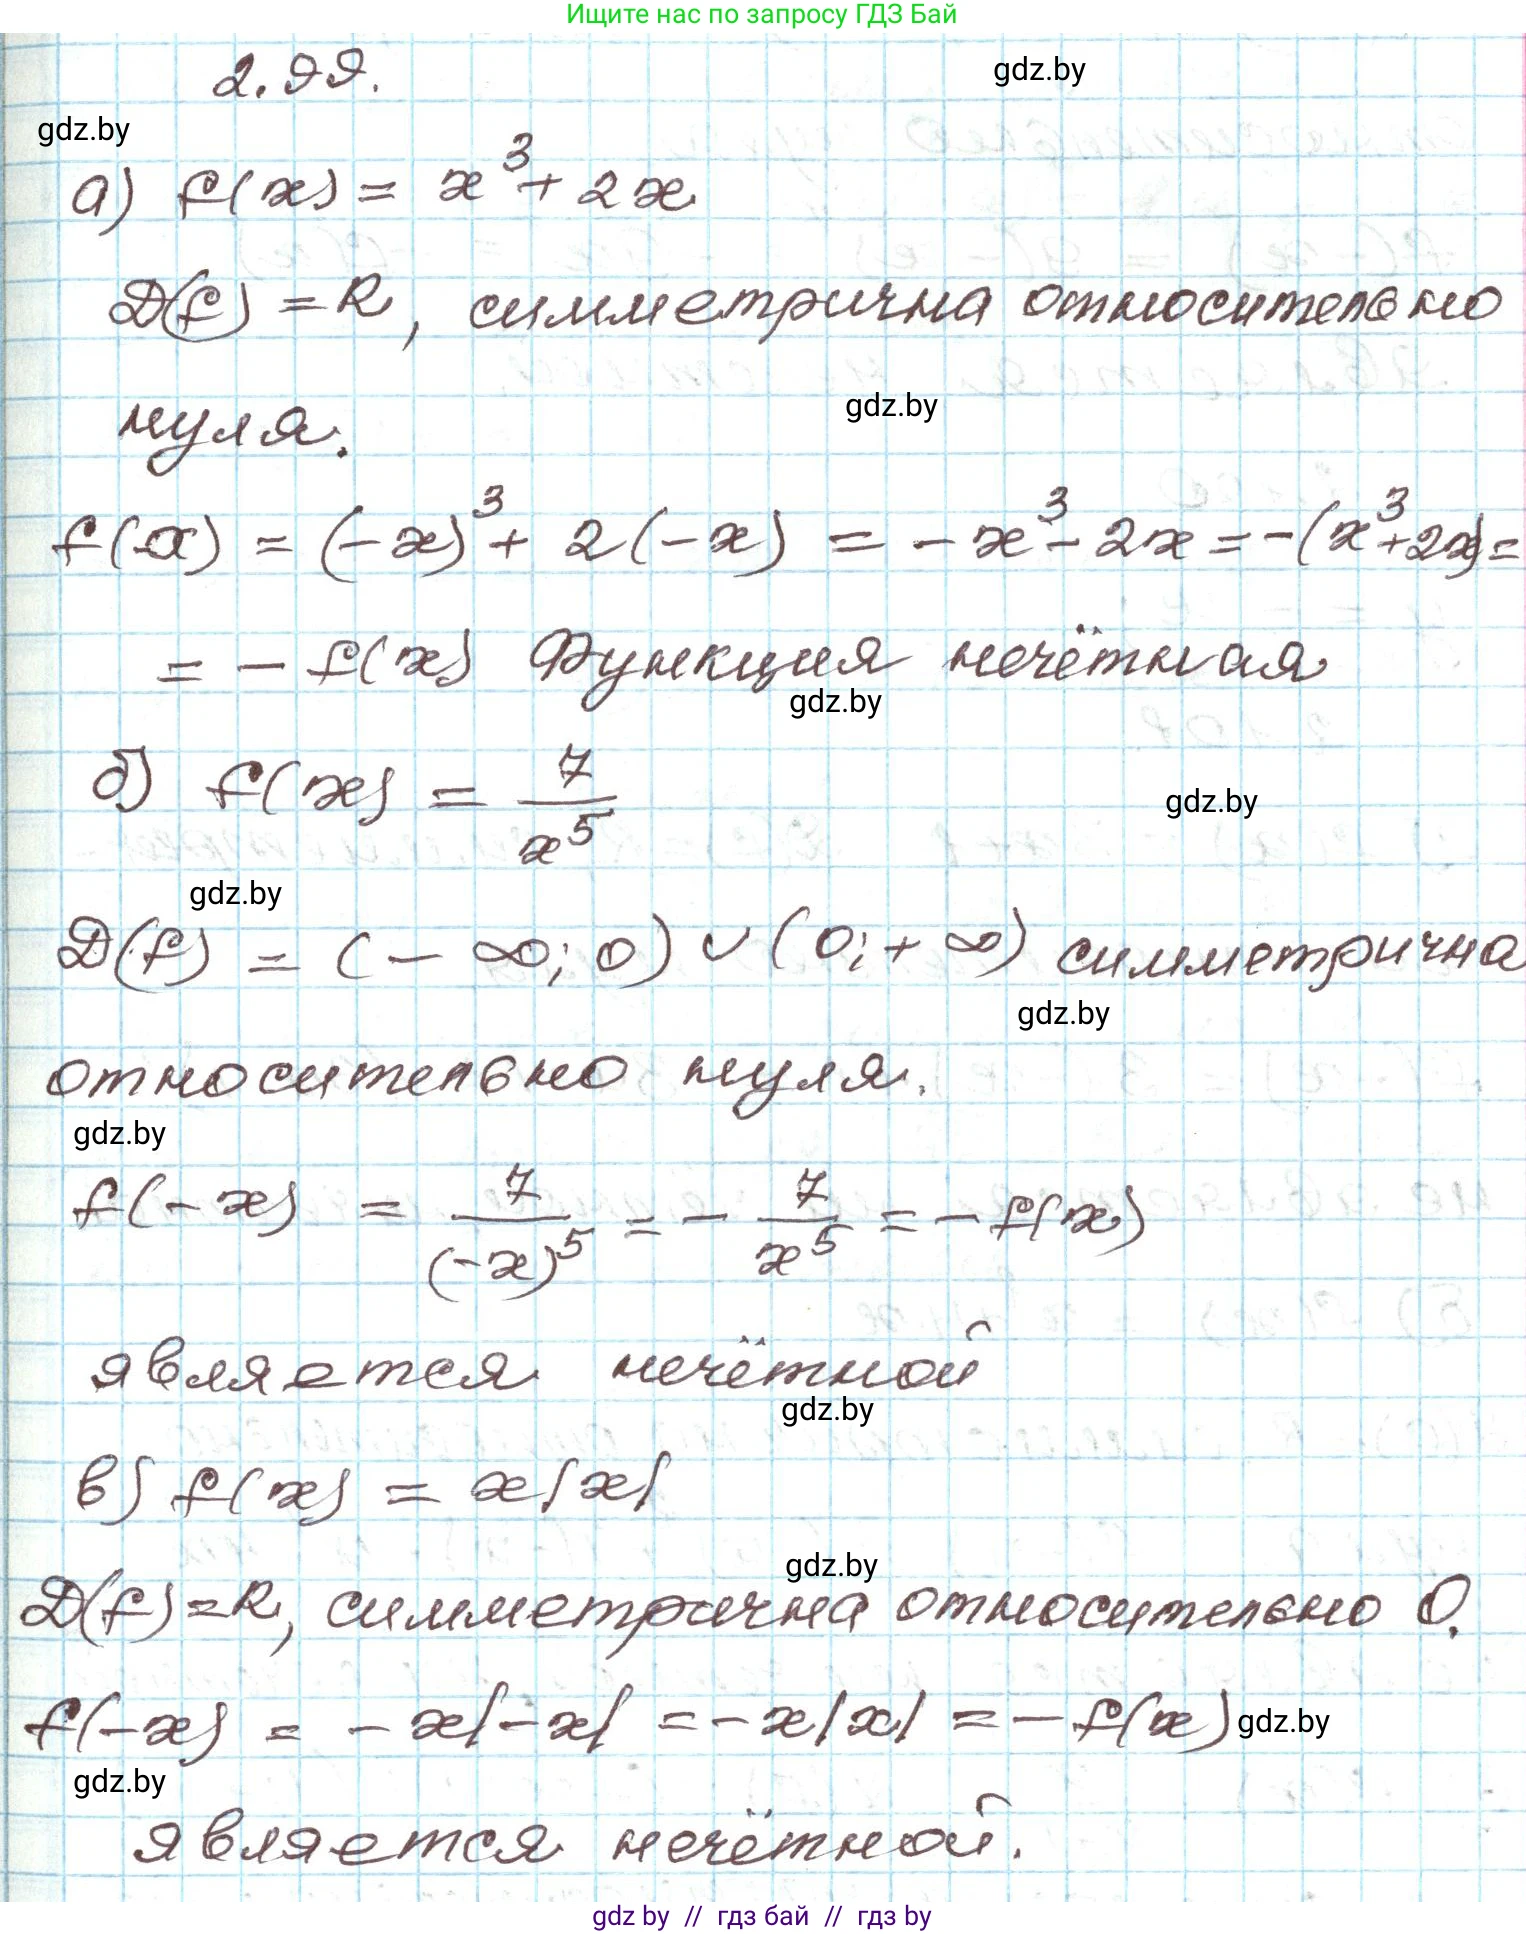 Ищите нас по запросу ГДЗ Бай
2.99.
gdz.by
gdz.by
а) f(x) = x³ + 2x
D(f) = R, симметрична относительно
нуля.
gdz.by
f(-x) = (-x)³ + 2(-x) = -x³ - 2x = -(x³+2x) =
= - f(x) Функция нечётная
gdz.by
б) f(x) = 7/x⁵
gdz.by
gdz.by
D(f) = (- ∞; 0) ∪ (0; + ∞) симметрична
gdz.by
относительно нуля.
gdz.by
f(-x) = 7/(-x)⁵ = - 7/x⁵ = - f(x)
является нечётной
gdz.by
в) f(x) = x|x|
gdz.by
D(f) = R, симметрична относительно 0.
f(-x) = - x|-x| = -x|x| = - f(x)
gdz.by
gdz.by
является нечётной.
gdz by // гдз бай // гдз by